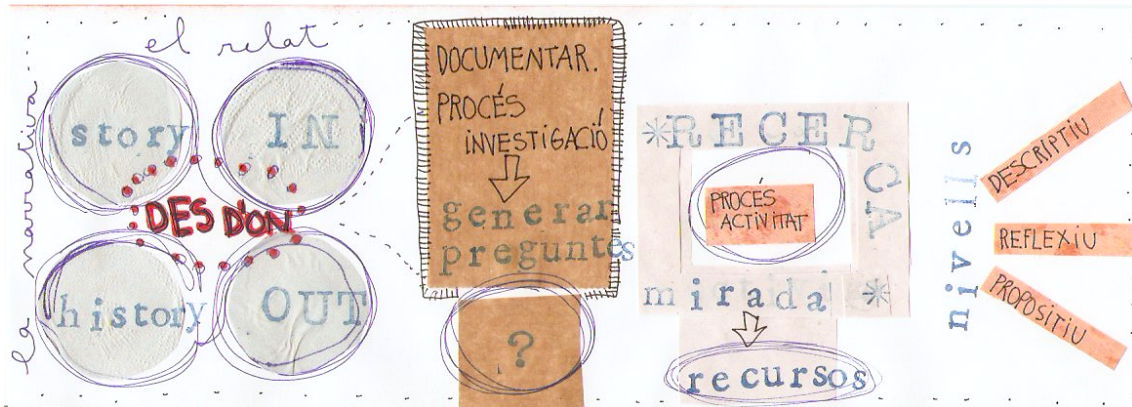 el relat
la narrativa
story
IN
DES D'ON
history
OUT
DOCUMENTAR.
PROCÉS
INVESTIGACIÓ
generar
preguntes
?
*RECERCA
PROCÉS
ACTIVITAT
mirada *
recursos
nivells
DESCRIPTIU
REFLEXIU
PROPOSITIU